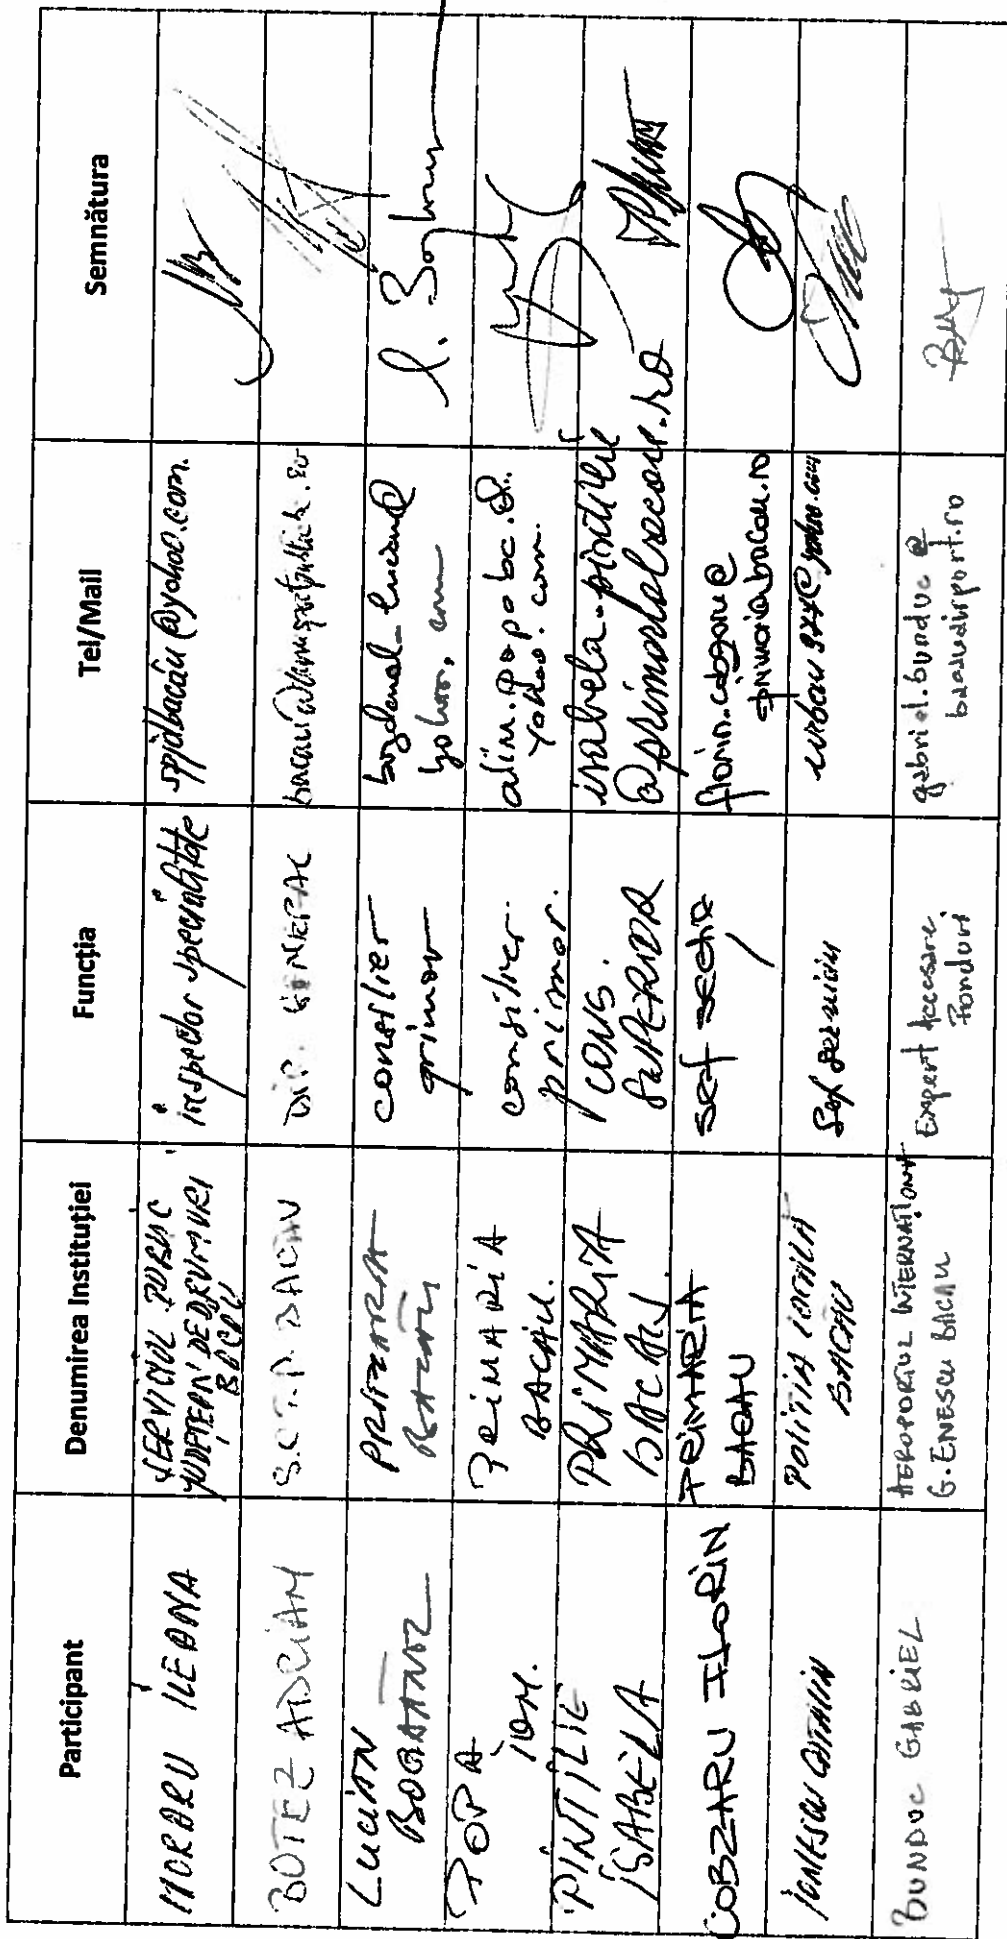 Participant
Denumirea Instituției
Funcția
Tel/Mail
Semnătura
MORARU ILEANA
SERVICIUL PUBLIC
JUDEȚEAN DE DRUMURI
BACĂU
inspector specialitate
spjdbacau@yahoo.com.
BOTEZ ADRIAN
BACĂU
DIR. GENERAL
LUCIAN
BOGDANEL
PRIMARIA
BACĂU
consilier
primar
yahoo. com
POPA
ION.
PRIMĂRIA
BACĂU.
consilier
primar.
yahoo. com.
PINTILIE
ISABELA
PRIMĂRIA
BACĂU
CONS.
SUPERIOR
isabela.pintilie
COBZARU FLORIN
PRIMĂRIA
BACĂU
sef secție
primariabacau.ro
CATALIN
POLIȚIA LOCALĂ
BACĂU
Șef serviciu
BUNDUC GABRIEL
AEROPORTUL INTERNAȚIONAL
G. ENESCU BACĂU
Expert Accesare
Fonduri
gabriel.bunduc@
bacauairport.ro